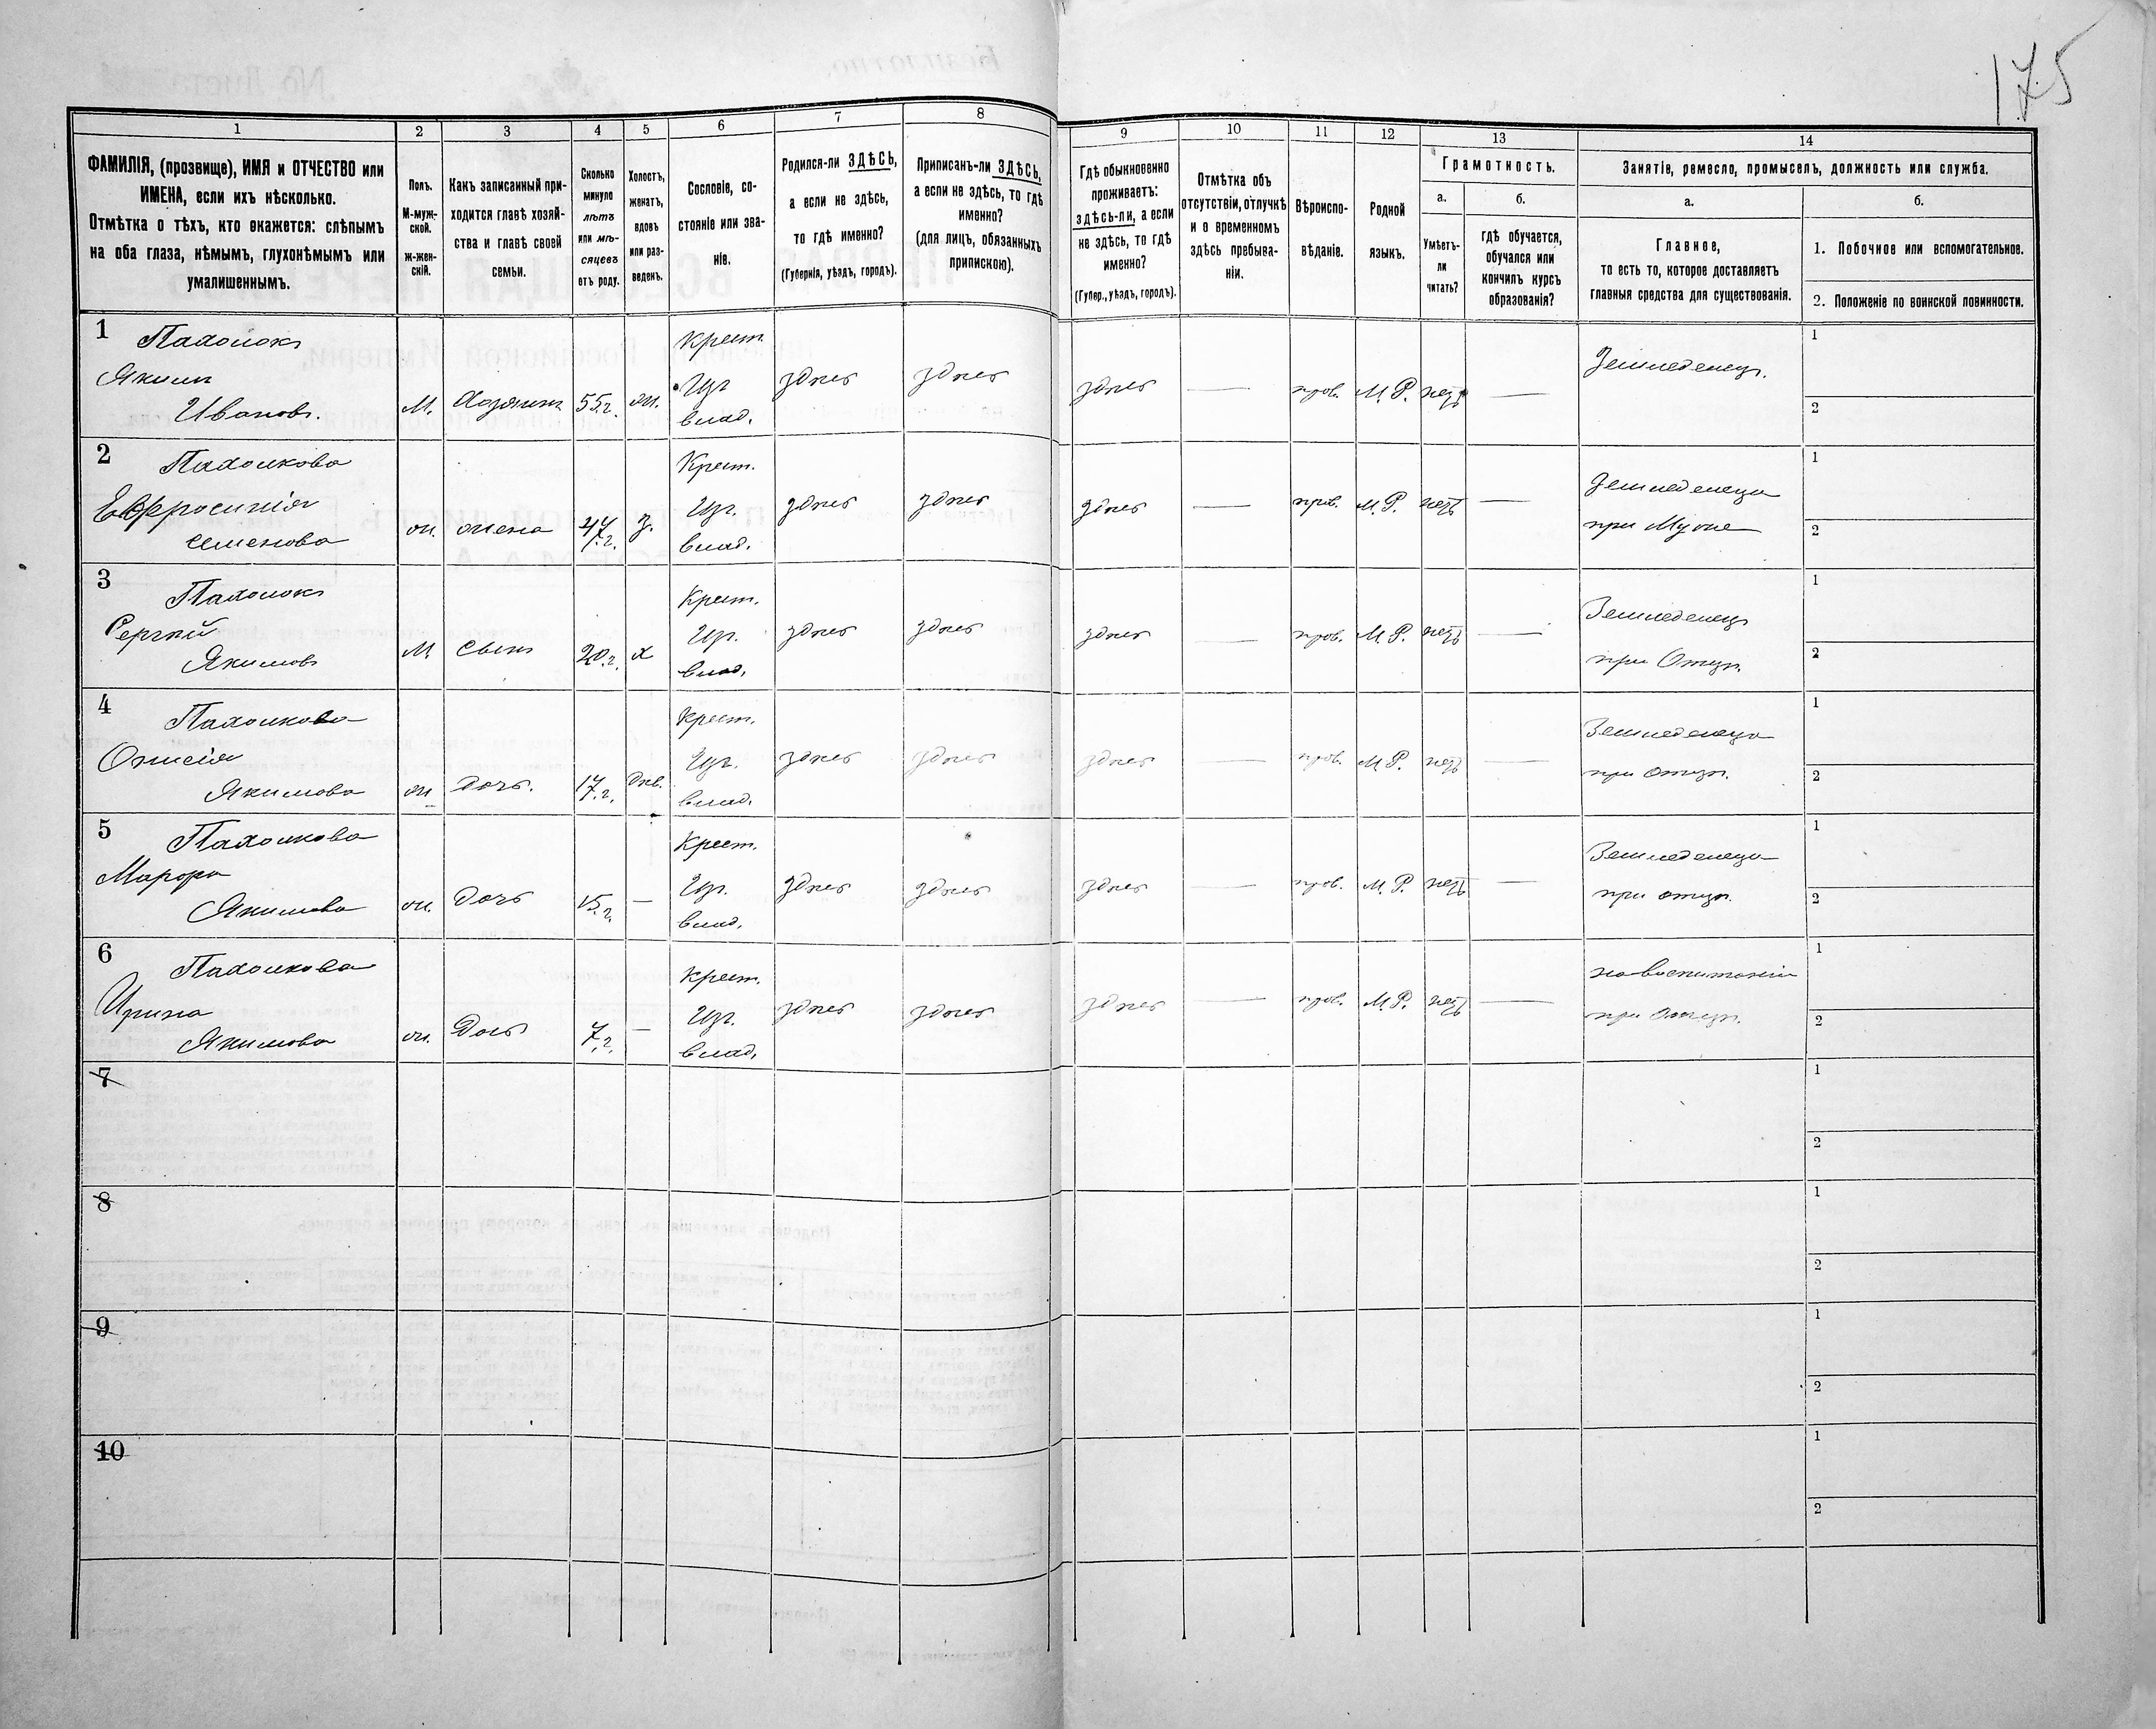 175
1 2 3 4 5 6 7 8 9 10 11 12 13 14
ФАМИЛІЯ, (прозвище), ИМЯ и ОТЧЕСТВО или
ИМЕНА, если ихъ нѣсколько.
Отмѣтка о тѣхъ, кто окажется: слѣпымъ
на оба глаза, нѣмымъ, глухонѣмымъ или
умалишеннымъ.
Полъ.
М-муж-
ской.
Ж-жен-
скій.
Какъ записанный при-
ходится главѣ хозяй-
ства и главѣ своей
семьи.
Сколько
минуло
лѣтъ
или мѣ-
сяцевъ
отъ роду.
Холостъ,
женатъ,
вдовъ
или раз-
веденъ.
Сословіе, со-
стояніе или зва-
ніе.
Родился-ли ЗДѢСЬ,
а если не здѣсь,
то гдѣ именно?
(Губернія, уѣздъ, городъ).
Приписанъ-ли ЗДѢСЬ,
а если не здѣсь, то гдѣ
именно?
(для лицъ, обязанныхъ
припискою).
Гдѣ обыкновенно
проживаетъ:
здѣсь-ли, а если
не здѣсь, то гдѣ
именно?
(Губер., уѣздъ, городъ).
Отмѣтка объ
отсутствіи, отлучкѣ
и о временномъ
здѣсь пребыва-
ніи.
Вѣроиспо-
вѣданіе.
Родной
языкъ.
Грамотность.
а.
Умѣетъ-
ли
читать?
б.
гдѣ обучается,
обучался или
кончилъ курсъ
образованія?
Занятіе, ремесло, промыселъ, должность или служба.
а.
Главное,
то есть то, которое доставляетъ
главныя средства для существованія.
б.
1. Побочное или вспомогательное.
2. Положеніе по воинской повинности.
1 Пахолокъ
Якимъ
Ивановъ.
М. Хозяинъ 55.г. ж.
Крест.
влад.
здѣсь здѣсь здѣсь — прав. М.Р. нетъ —
Земледелецъ.
1
2
2 Пахолкова
Евфросинія
Семенова
ж. жена 47.г. з.
Крест.
влад.
здѣсь здѣсь здѣсь — прав. М.Р. нетъ —
Земледелица
при Мужѣ
1
2
3 Пахолокъ
Сергѣй
Якимовъ
М. Сынъ 20.г. х
Крест.
влад.
здѣсь здѣсь здѣсь — прав. М.Р. нетъ —
Земледелецъ
при Отцѣ.
1
2
4 Пахолкова
Якимова
ж Дочь. 17.г. Дѣв.
Крест.
влад.
здѣсь здѣсь здѣсь — прав. М.Р. нетъ —
Земледелица
при отцѣ.
1
2
5 Пахолкова
Марфа
Якимова
ж. Дочь 15.г. —
Крест.
влад.
здѣсь здѣсь здѣсь — прав. М.Р. нетъ —
Земледелица
при отцѣ.
1
2
6 Пахолкова
Ирина
Якимова
ж. Дочь 7.г. —
Крест.
влад.
здѣсь здѣсь здѣсь — прав. М.Р. нетъ —
на воспитаніи
при Отцѣ.
1
2
7
1
2
8
1
2
9
1
2
10
1
2